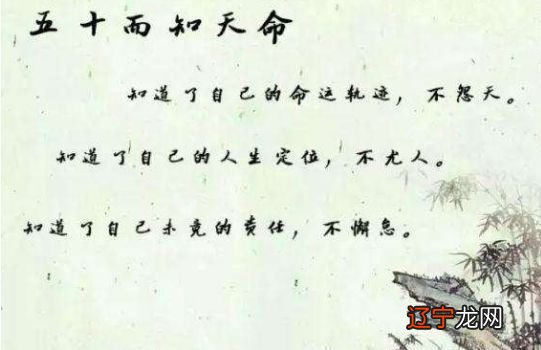 五十而知天命
知道了自己的命运轨迹，不怨天。
知道了自己的人生定位，不尤人。
知道了自己未竟的责任，不懈怠。
辽宁龙网